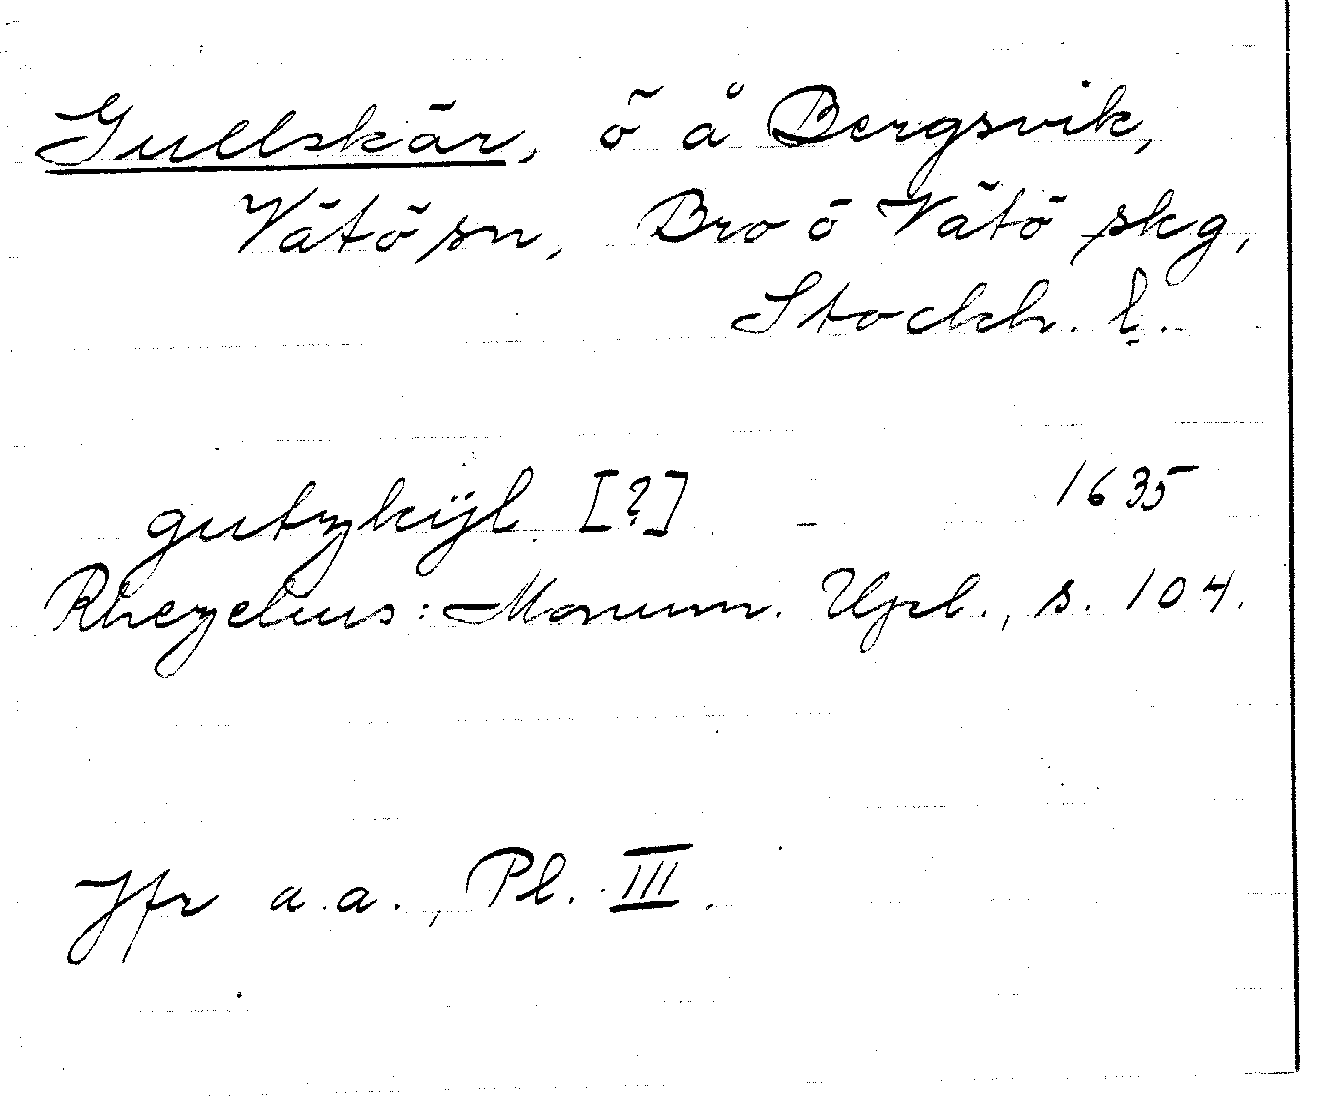 Gullskär, ö å Bergsvik,
Vätö sn, Bro o Vätö skg,
Stockh. l.
gutzkijl [?] - 1635
Rhezelius: Monum. Upl., s. 104.
Jfr a.a., Pl. III.